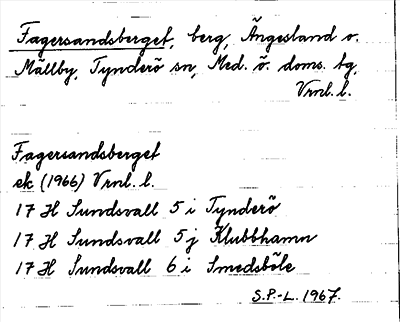 Fagersandsberget, berg, Ängesland o.
Mällby, Tynderö sn, Med. ö. doms. tg,
Vrnl. l.
Fagersandsberget
ek (1966) Vrnl. l.
17 H Sundsvall 5 i Tynderö
17 H Sundsvall 5 j Klubbhamn
17 H Sundsvall 6 i Smedsböle
S.P.-L. 1967.